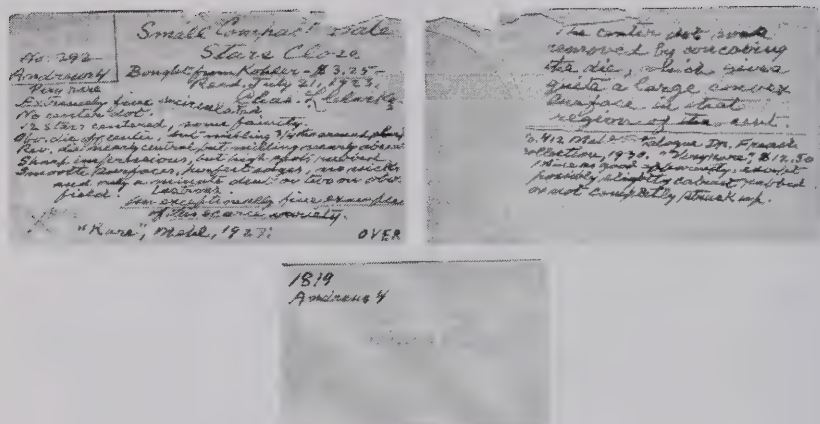 Small Compact Date
Stars Close
No. 292
Andrews 4
Bought from Kohler - $3.25 -
Very rare
Recd. July 21, 1923.
Extremely fine
No center dot.
12 stars centered, some faintly.
Obv. die off center, but milling 3/4 the around
Rev. die nearly central, but milling nearly absent
Sharp impressions, but high spots rubbed.
Smooth surfaces, perfect edges, no nicks
and only a minute dent or two on obv.
field. Lustrous
An exceptionally fine example
of this scarce variety.
"Rare", Mehl, 1927.
OVER
The center dot was
removed by concaving
the die, which gives
quite a large convex
surface in that
region of the cent.
412 Mehl Catalogue Dr. French
Collection, 1930. "Very rare". $12.50
mine as good apparently, except
possibly slightly cabinet rubbed
or not completely struck up.
1819
Andrews 4